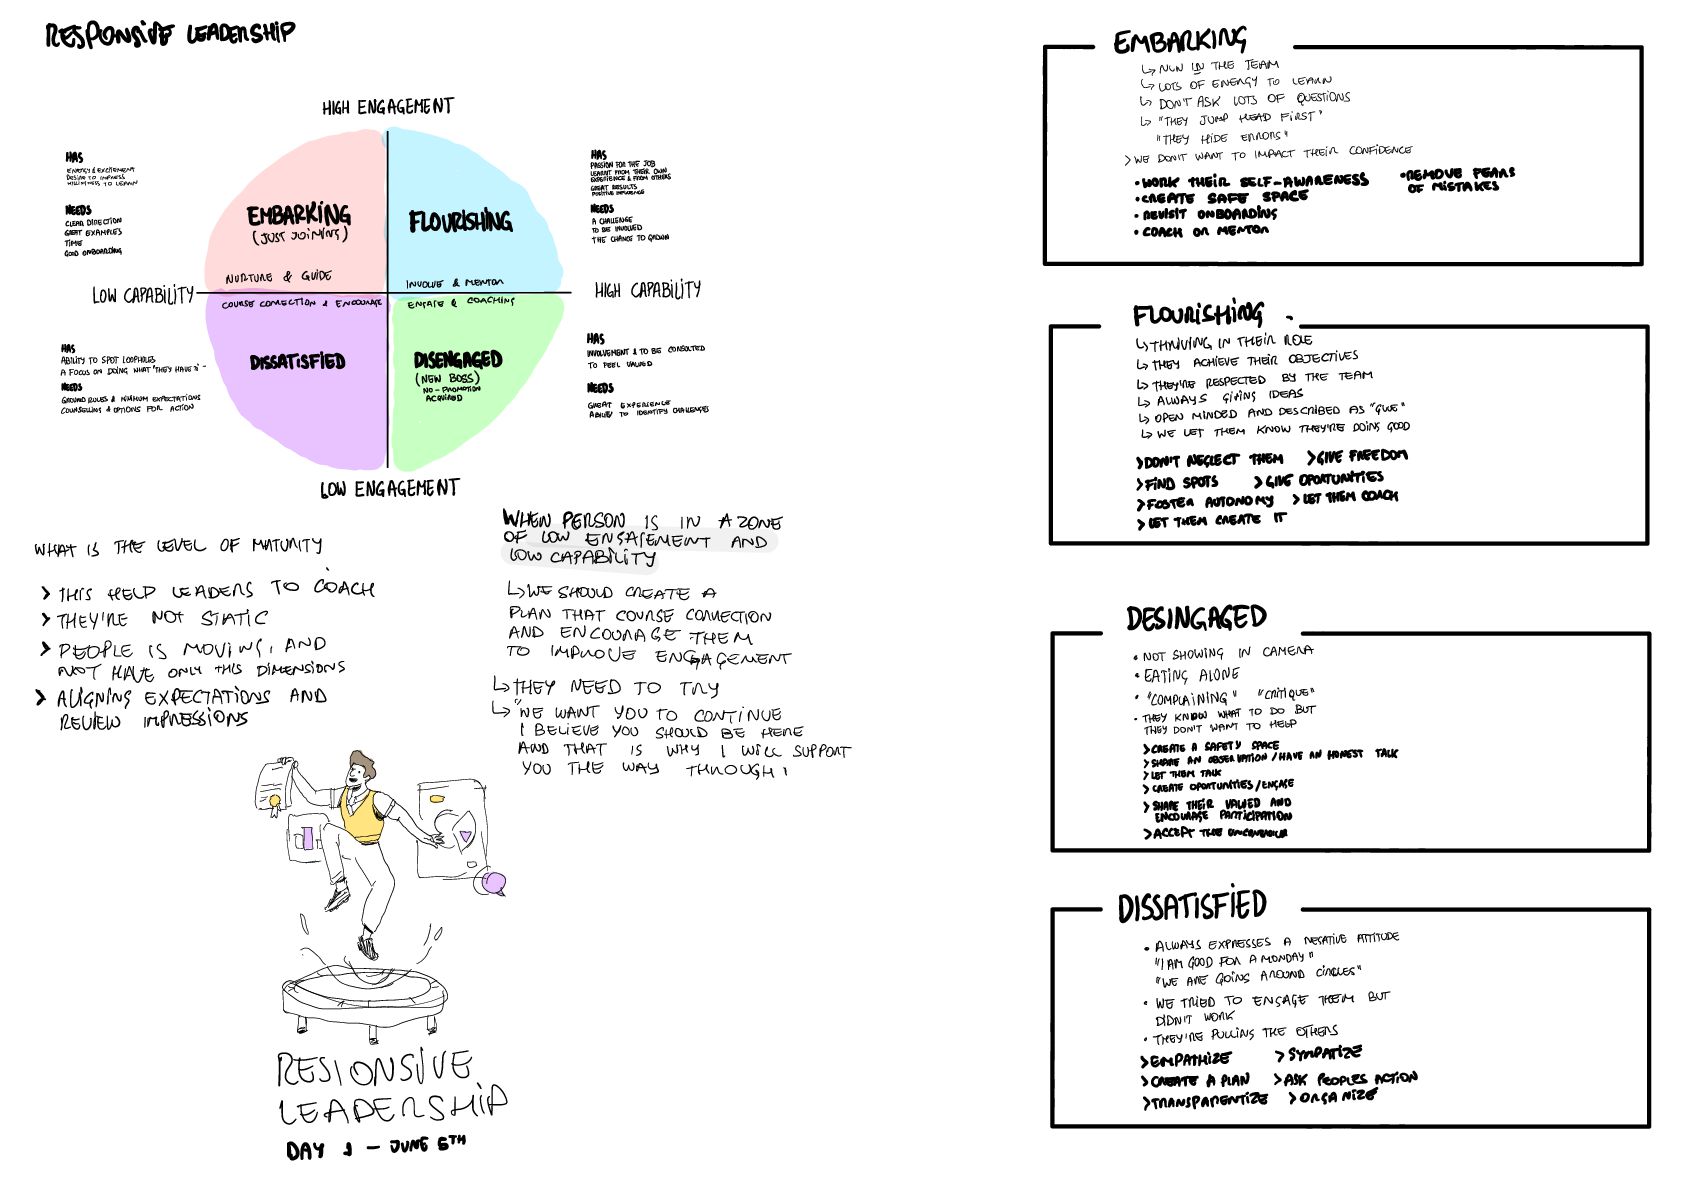 RESPONSIVE LEADERSHIP
HIGH ENGAGEMENT
HAS
ENERGY & EXCITEMENT
DESIRE TO IMPRESS
WILLINGNESS TO LEARN
NEEDS
CLEAR DIRECTION
GREAT EXAMPLES
TIME
GOOD ONBOARDING
EMBARKING
(JUST JOINING)
NURTURE & GUIDE
FLOURISHING
INVOLVE & MENTOR
HAS
PASSION FOR THE JOB
LEARNT FROM THEIR OWN
EXPERIENCE & FROM OTHERS
GREAT RESULTS
POSITIVE INFLUENCE
NEEDS
A CHALLENGE
TO BE INVOLVED
THE CHANCE TO GROWN
LOW CAPABILITY
HIGH CAPABILITY
COURSE CORRECTION & ENCOURAGE
DISSATISFIED
ENGAGE & COACHING
DISENGAGED
(NEW BOSS)
NO-PROMOTION
ACQUIRED
HAS
ABILITY TO SPOT LOOPHOLES
A FOCUS ON DOING WHAT "THEY HAVE TO"
NEEDS
GROUND RULES & MINIMUM EXPECTATIONS
COUNSELLING & OPTIONS FOR ACTION
HAS
INVOLVEMENT & TO BE CONSULTED
TO FEEL VALUED
NEEDS
GREAT EXPERIENCE
ABILITY TO IDENTIFY CHALLENGES
LOW ENGAGEMENT
WHAT IS THE LEVEL OF MATURITY
> THIS HELP LEADERS TO COACH
> THEY'RE NOT STATIC
> PEOPLE IS MOVING, AND
NOT HAVE ONLY THIS DIMENSIONS
> ALIGNING EXPECTATIONS AND
REVIEW IMPRESSIONS
WHEN PERSON IS IN A ZONE
OF LOW ENGAGEMENT AND
LOW CAPABILITY
↳ WE SHOULD CREATE A
PLAN THAT COURSE CORRECTION
AND ENCOURAGE THEM
TO IMPROVE ENGAGEMENT
↳ THEY NEED TO TRY
↳ "WE WANT YOU TO CONTINUE
I BELIEVE YOU SHOULD BE HERE
AND THAT IS WHY I WILL SUPPORT
YOU THE WAY THROUGH!
RESPONSIVE
LEADERSHIP
DAY 1 - JUNE 6TH
EMBARKING
↳ NEW IN THE TEAM
↳ LOTS OF ENERGY TO LEARN
↳ DON'T ASK LOTS OF QUESTIONS
↳ "THEY JUMP HEAD FIRST"
"THEY HIDE ERRORS"
> WE DON'T WANT TO IMPACT THEIR CONFIDENCE
• WORK THEIR SELF-AWARENESS
• CREATE SAFE SPACE
• REVISIT ONBOARDING
• COACH OR MENTOR
• REMOVE FEARS
OF MISTAKES
FLOURISHING
↳ THRIVING IN THEIR ROLE
↳ THEY ACHIEVE THEIR OBJECTIVES
↳ THEY'RE RESPECTED BY THE TEAM
↳ ALWAYS GIVING IDEAS
↳ OPEN MINDED AND DESCRIBED AS "GLUE"
↳ WE LET THEM KNOW THEY'RE DOING GOOD
> DON'T NEGLECT THEM > GIVE FREEDOM
> FIND SPOTS > GIVE OPORTUNITIES
> FOSTER AUTONOMY > LET THEM COACH
> LET THEM CREATE IT
DESINGAGED
• NOT SHOWING IN CAMERA
• EATING ALONE
• "COMPLAINING" "CRITIQUE"
• THEY KNOW WHAT TO DO BUT
THEY DON'T WANT TO HELP
> CREATE A SAFETY SPACE
> SHARE AN OBSERVATION / HAVE AN HONEST TALK
> LET THEM TALK
> CREATE OPORTUNITIES / ENGAGE
> SHARE THEIR VALUED AND
ENCOURAGE PARTICIPATION
> ACCEPT THE
DISSATISFIED
• ALWAYS EXPRESSES A NEGATIVE ATTITUDE
"I AM GOOD FOR A MONDAY"
"WE ARE GOING AROUND CIRCLES"
• WE TRIED TO ENGAGE THEM BUT
DIDN'T WORK
• THEY'RE PULLING THE OTHERS
> EMPATHIZE > SYMPATIZE
> CREATE A PLAN > ASK PEOPLES ACTION
> TRANSPARENTIZE > ORGANIZE